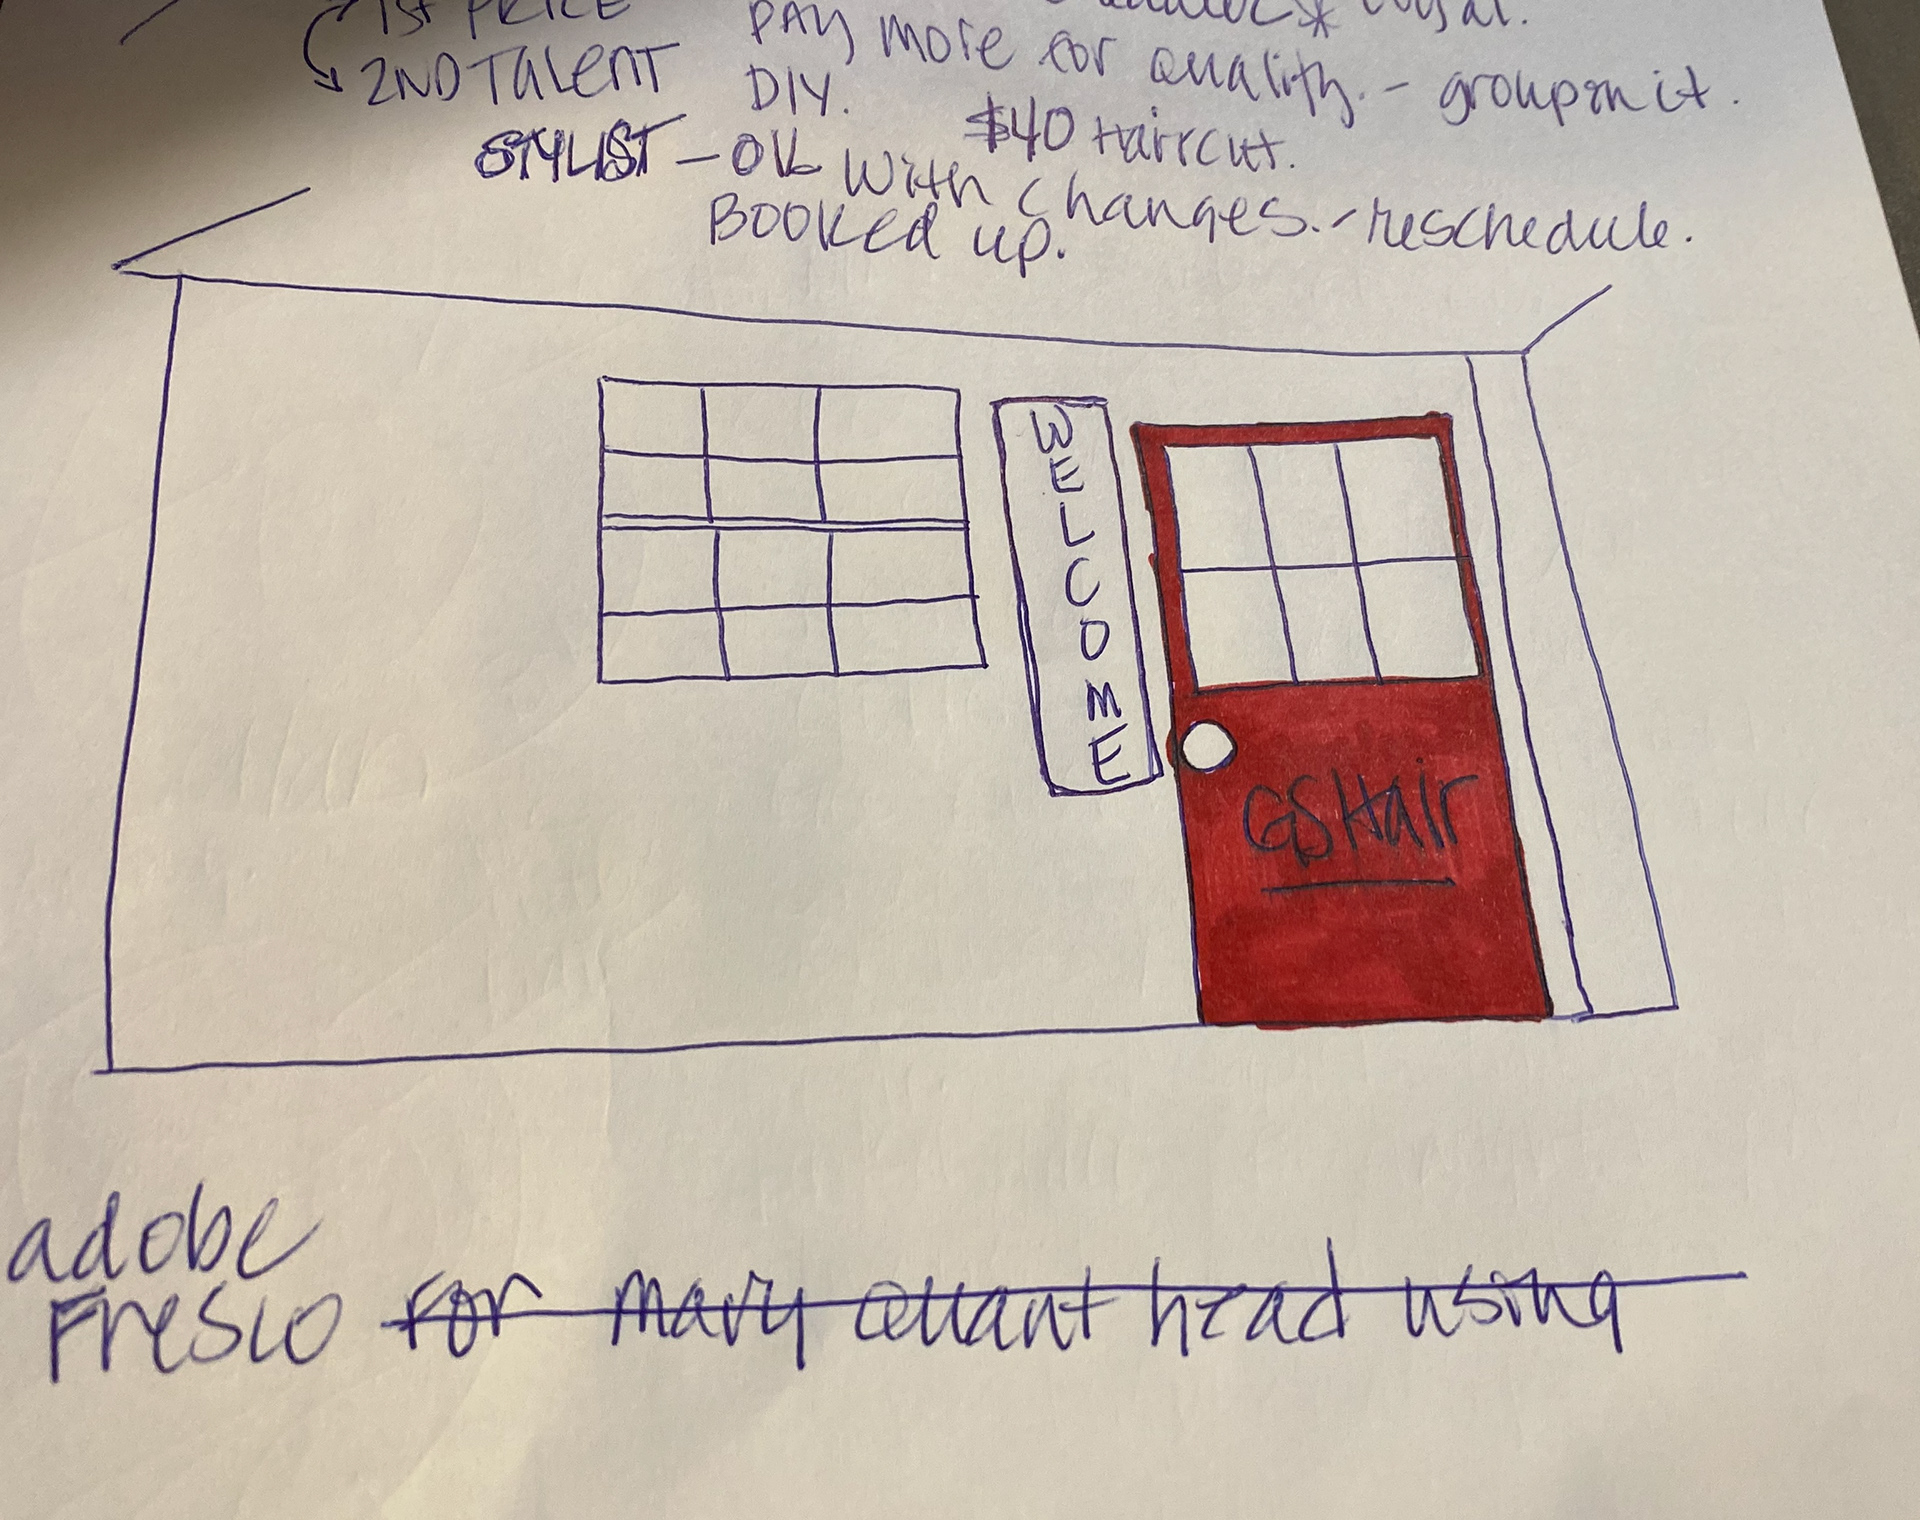 1ST PRICE
2ND Talent
PAY more for quality. - groupon it.
DIY.
$40 Haircut.
STYLIST - OK with changes. - reschedule.
BOOKed up.
WELCOME
GSHair
adobe
Fresco for mary quant head using